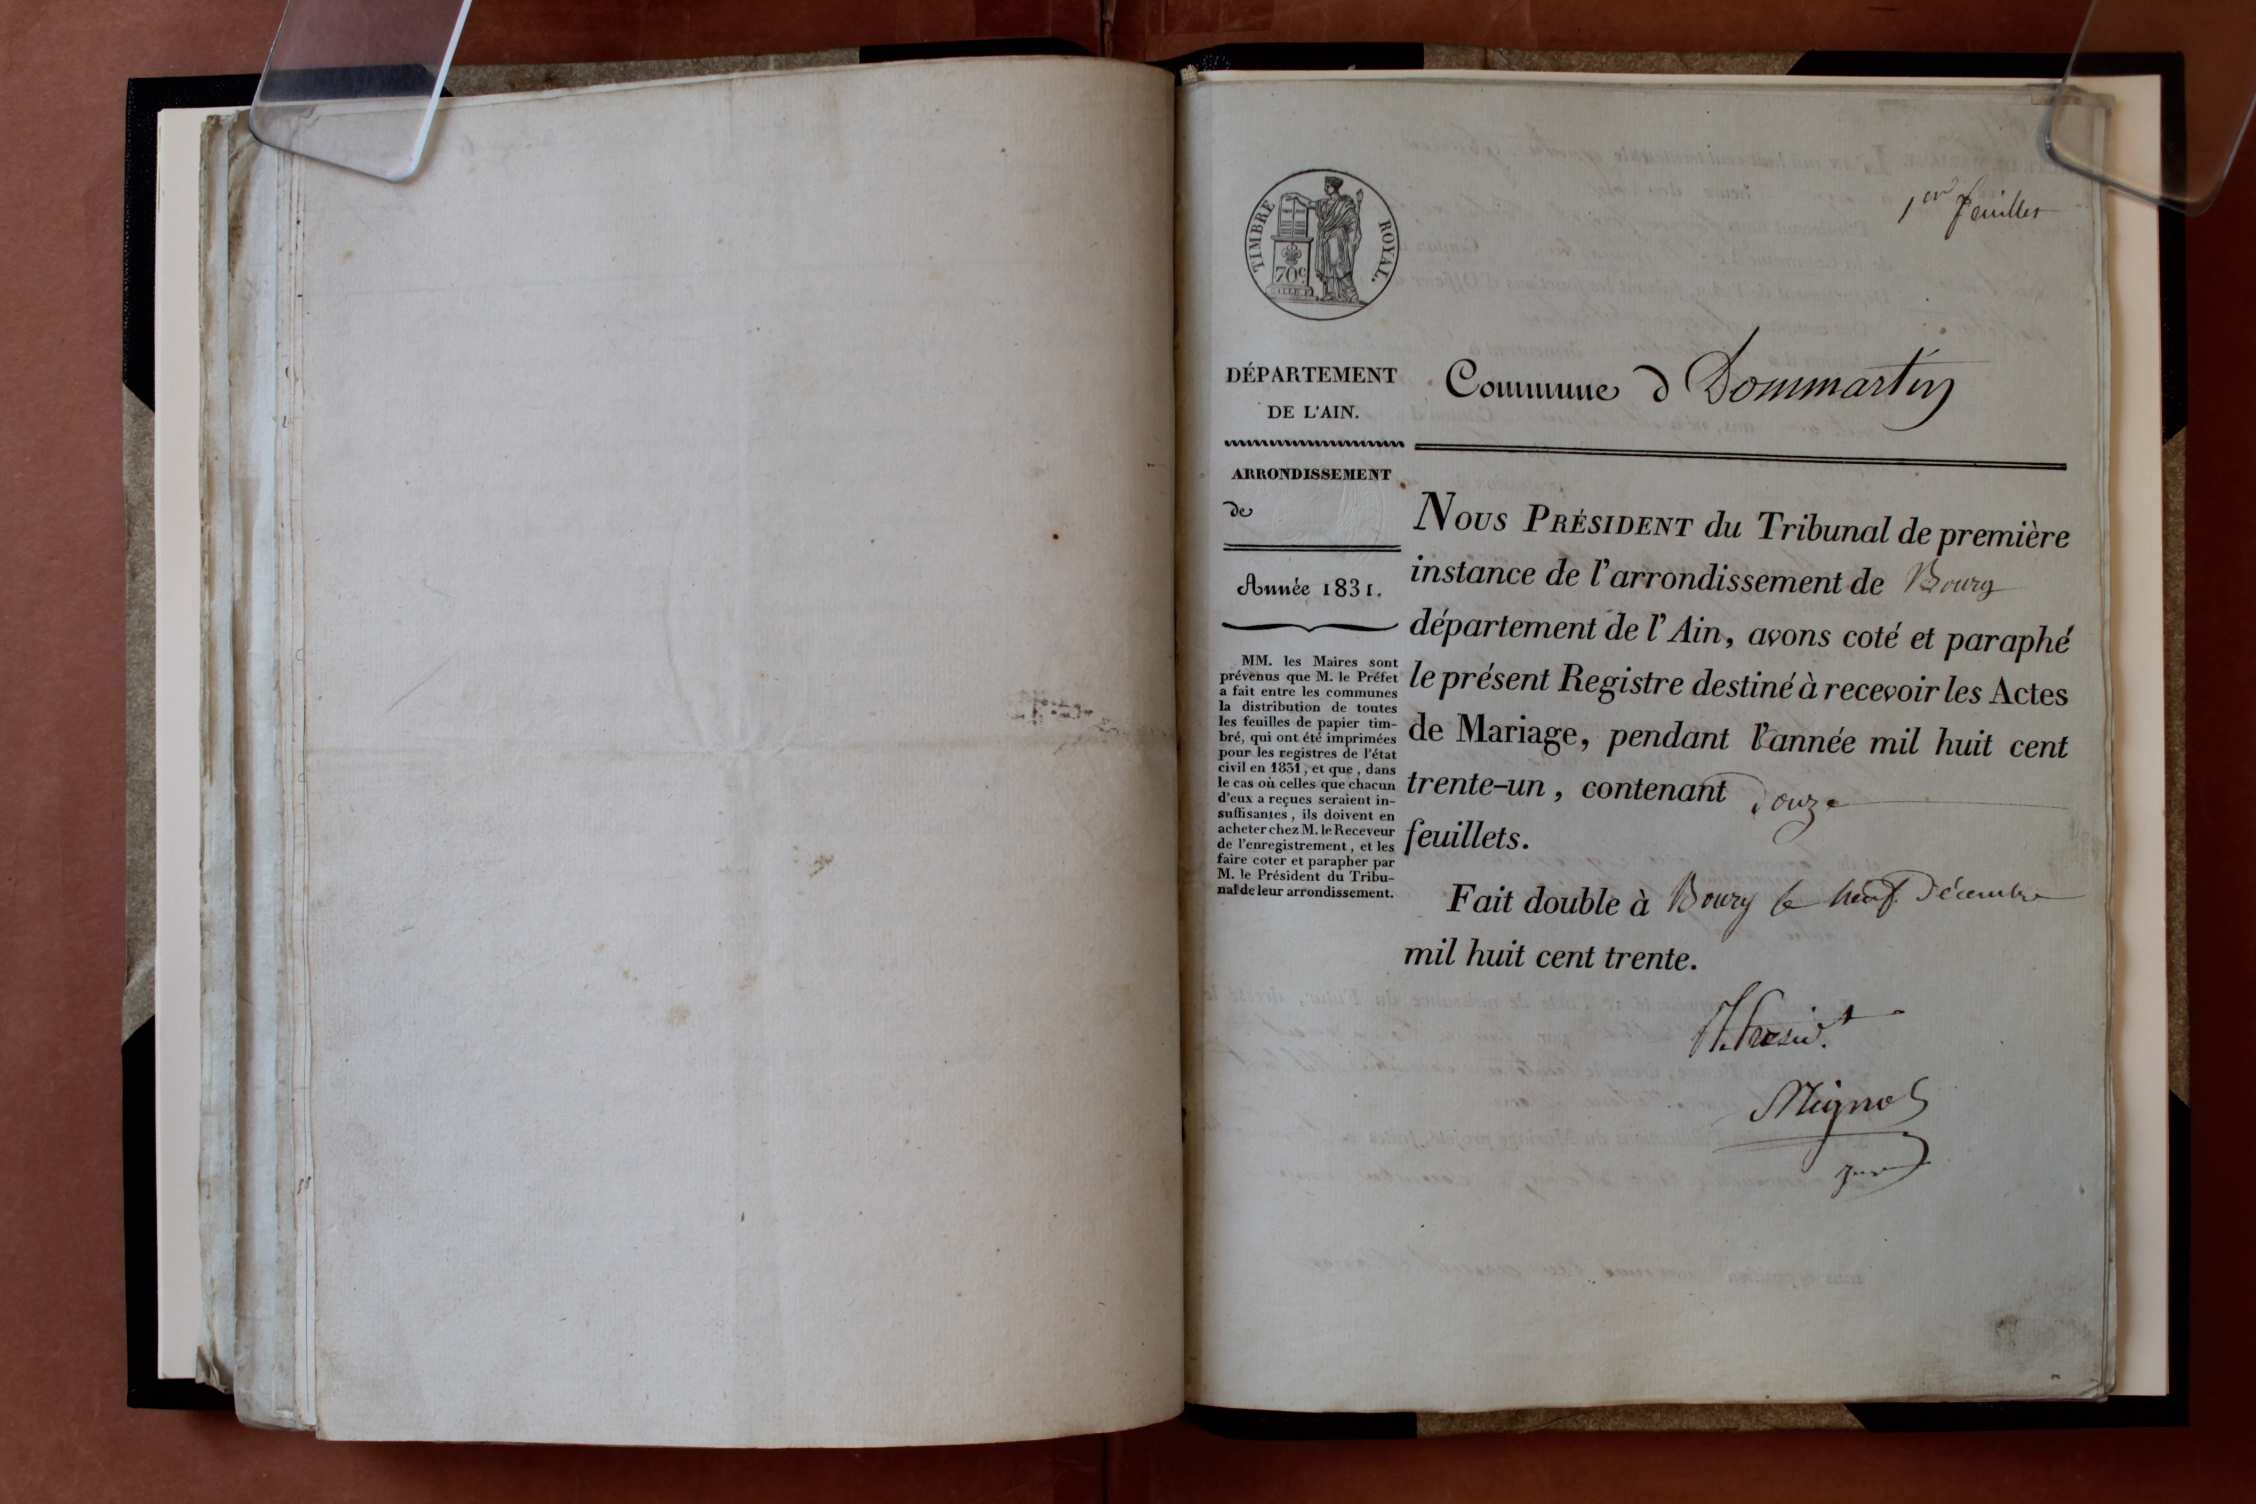 1er feuillet
TIMBRE ROYAL.
70c
DÉPARTEMENT
DE L'AIN.
Commune d Dommartin
ARRONDISSEMENT
de
Année 1831.
MM. les Maires sont
prévenus que M. le Préfet
a fait entre les communes
la distribution de toutes
les feuilles de papier tim-
bré, qui ont été imprimées
pour les registres de l'état
civil en 1831, et que, dans
le cas où celles que chacun
d'eux a reçues seraient in-
suffisantes, ils doivent en
acheter chez M. le Receveur
de l'enregistrement, et les
faire coter et parapher par
M. le Président du Tribu-
nal de leur arrondissement.
Nous Président du Tribunal de première
instance de l'arrondissement de Bourg
département de l'Ain, avons coté et paraphé
le présent Registre destiné à recevoir les Actes
de Mariage, pendant l'année mil huit cent
trente-un, contenant Douze
feuillets.
Fait double à Bourg le neuf Décembre
mil huit cent trente.
Mignot